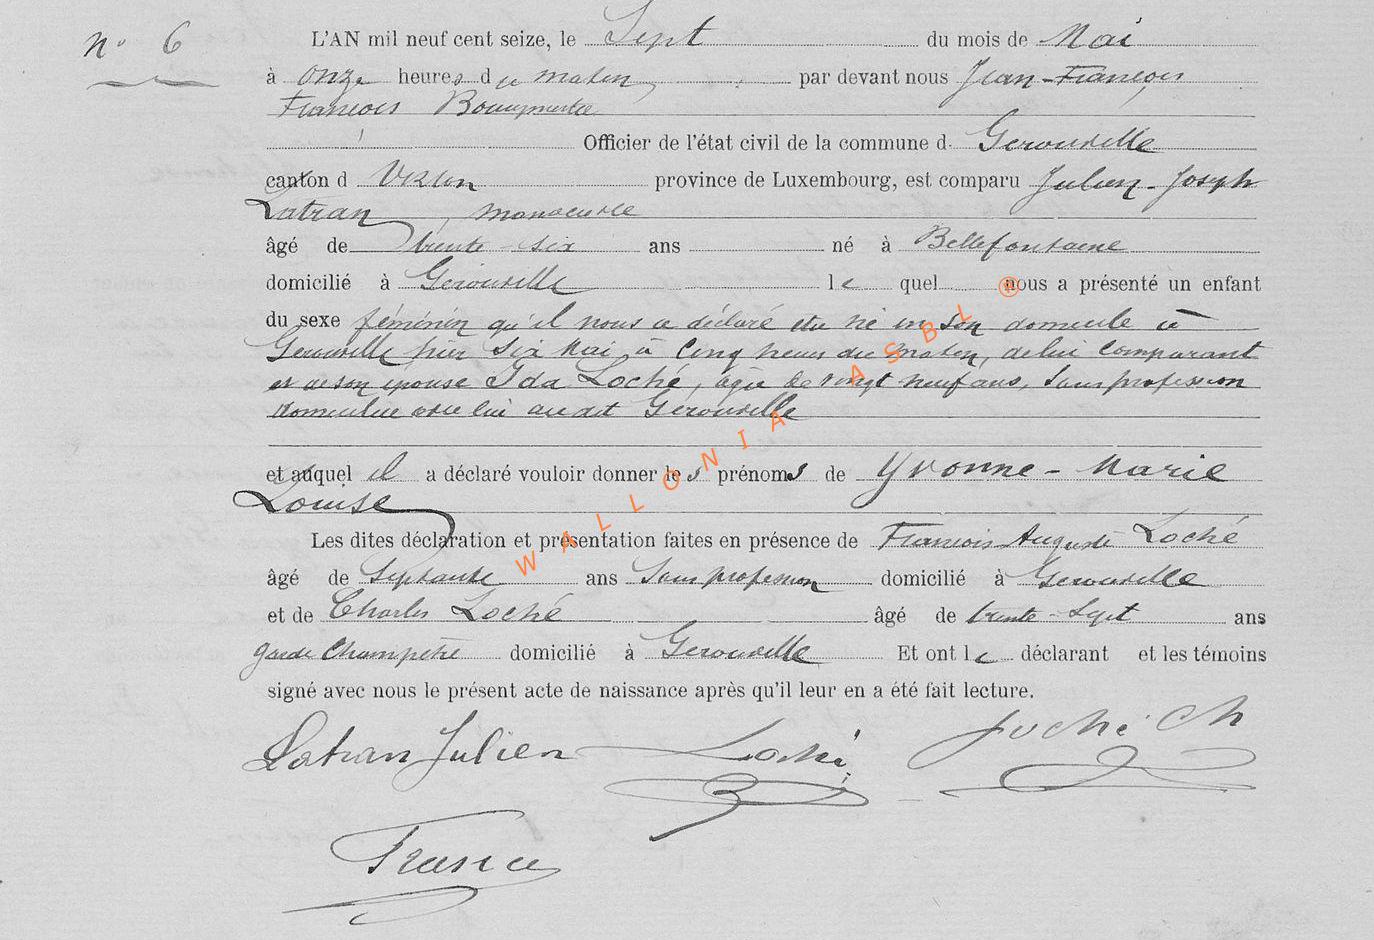 n° 6
L'AN mil neuf cent seize, le Sept du mois de Mai
à onze heures du matin, par devant nous Jean-François
François
Officier de l'état civil de la commune d Gérouville
canton d Virton province de Luxembourg, est comparu Julien-Joseph
Latran, manoeuvre
âgé de trente-six ans né à Bellefontaine
domicilié à Gérouville le quel nous a présenté un enfant
du sexe féminin qu'il nous a déclaré être né en son domicile à
Gérouville hier six Mai, à cinq heures du matin, de lui comparant
et de son épouse Ida Loché, âgée de vingt neuf ans, sans profession
domiciliée avec lui au dit Gérouville
et auquel il a déclaré vouloir donner les prénoms de Yvonne-Marie
Louise
Les dites déclaration et présentation faites en présence de François Auguste Loché
âgé de Septante ans Sans profession domicilié à Gérouville
et de Charles Loché âgé de trente-Sept ans
garde champêtre domicilié à Gérouville Et ont le déclarant et les témoins
signé avec nous le présent acte de naissance après qu'il leur en a été fait lecture.
Latran Julien Loché Loché Ch
WALLONIA ASBL ®